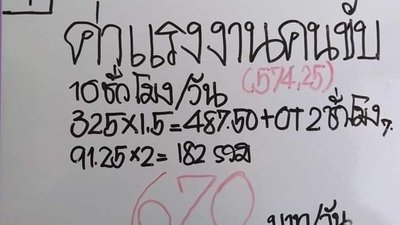 ค่าแรงงานคนขับ
10 ชั่วโมง/วัน (574,25)
325×1.5=487.50+OT 2 ชั่วโมง
91.25×2=182 รวม
670
บาท/วัน